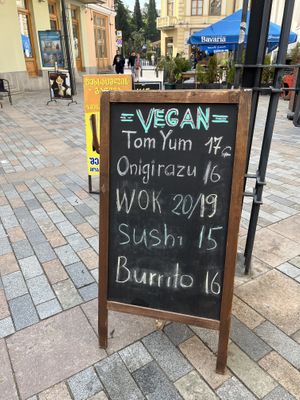 Bavaria
=VEGAN=
Tom Yum 17₾
Onigirazu 16
WOK 20/19
Sushi 15
Burrito 16